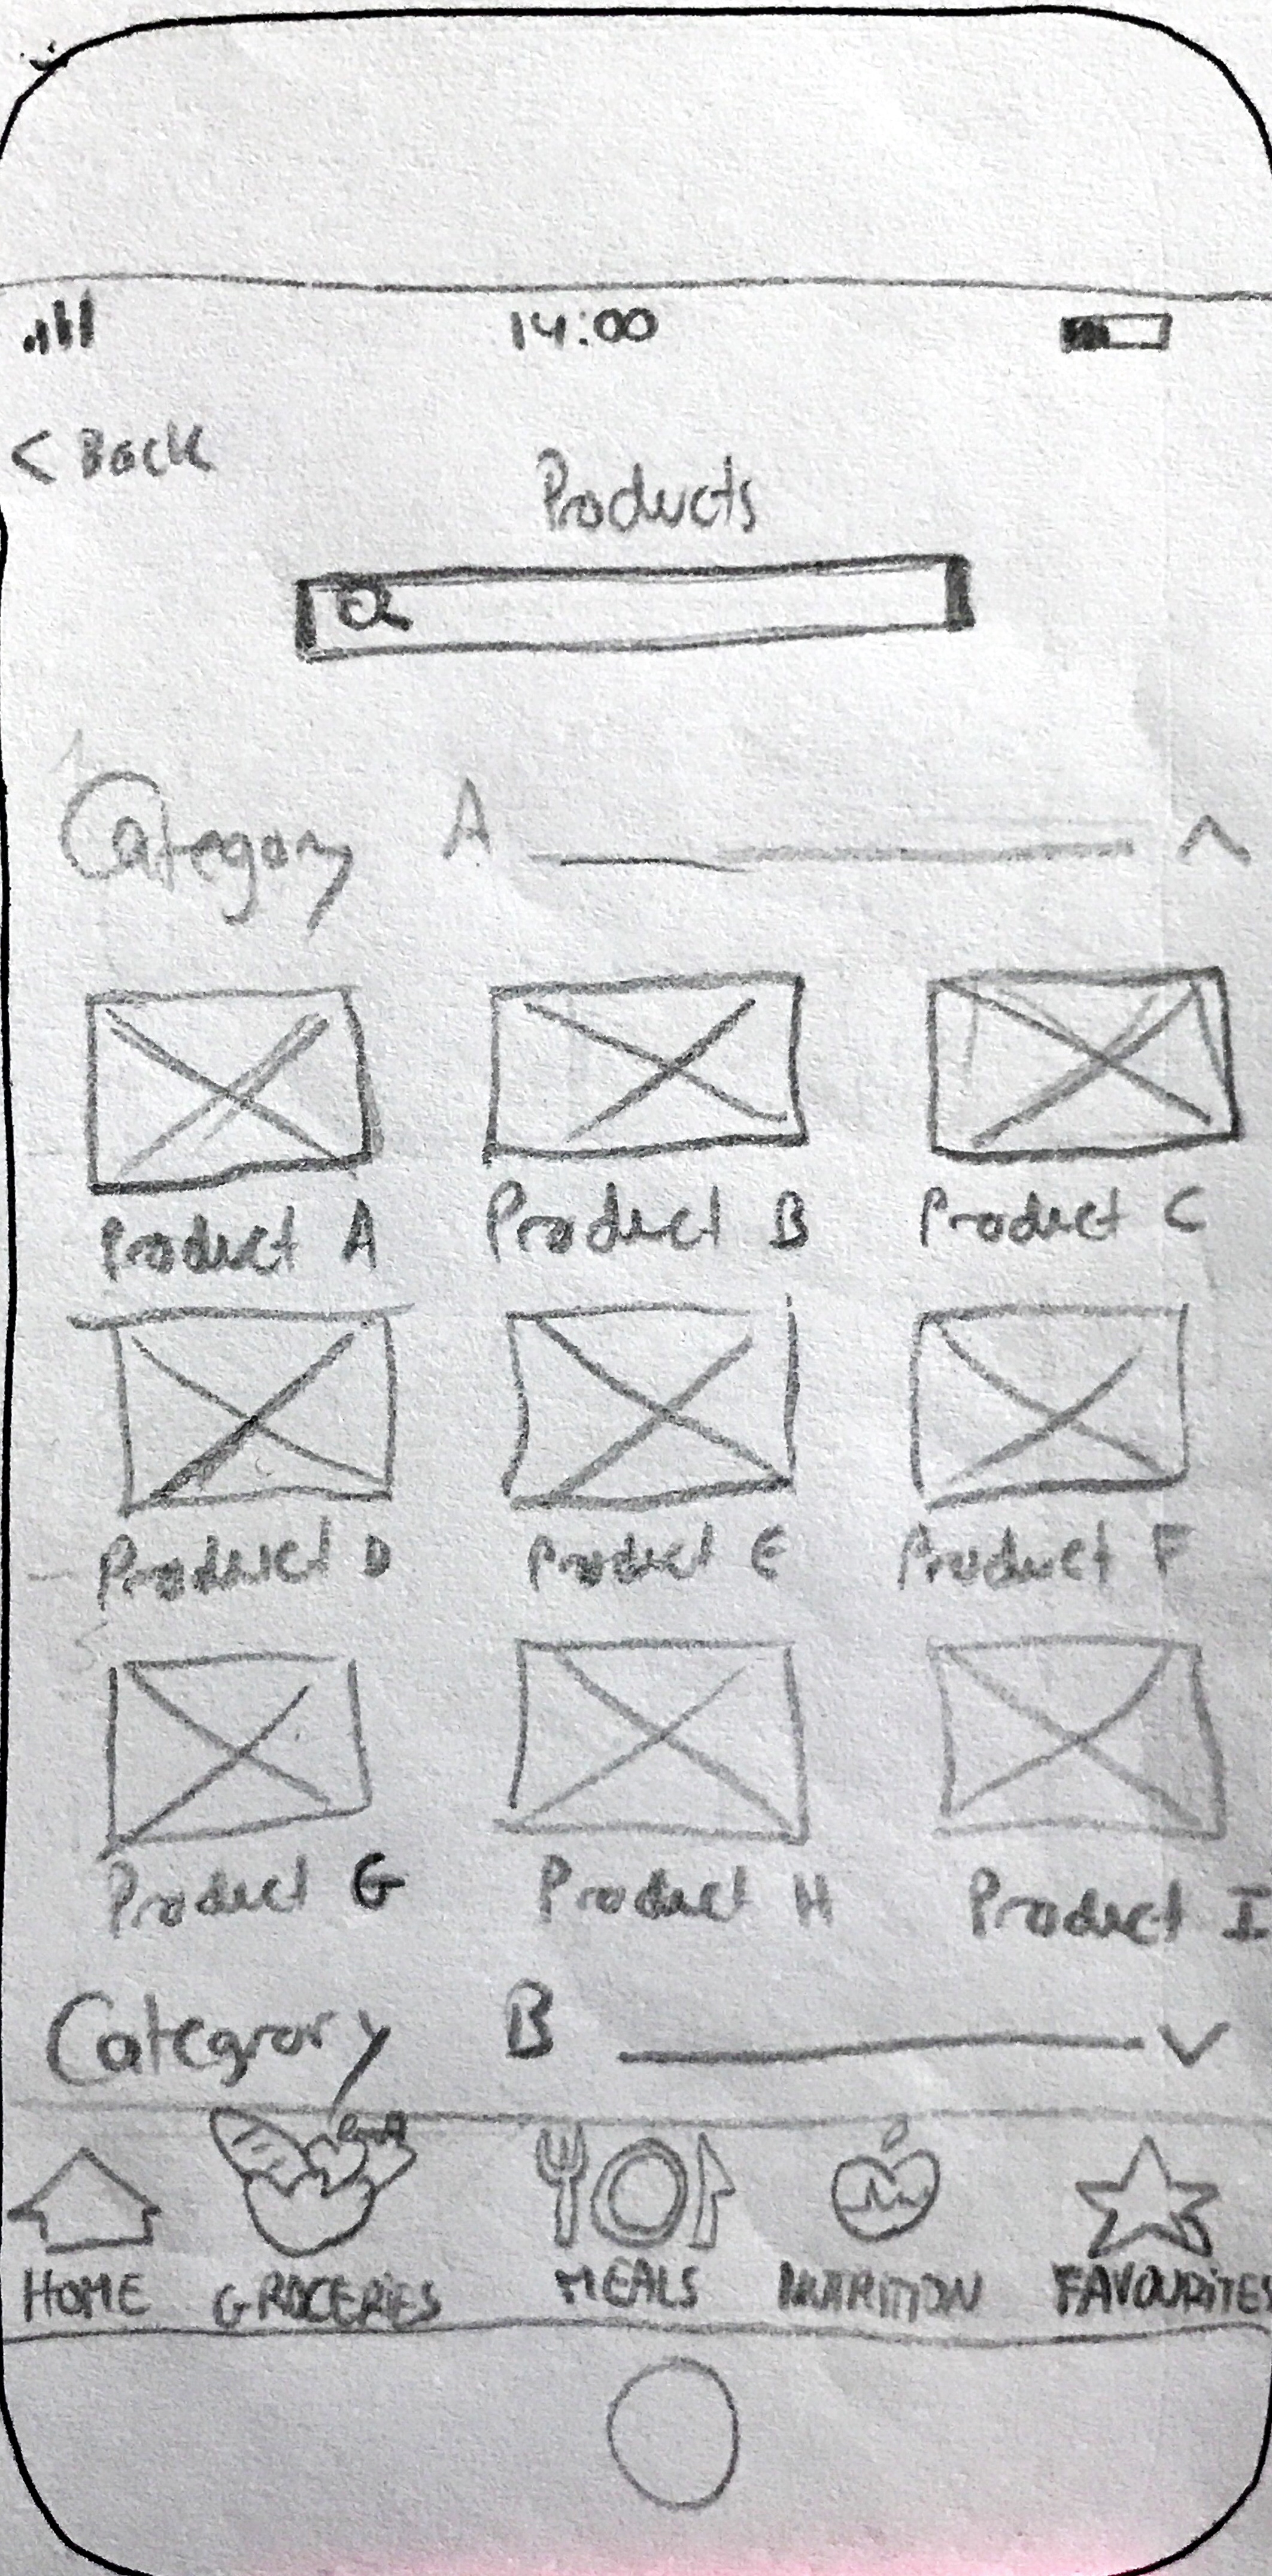 14:00
< Back
Products
Category A
Product A Product B Product C
Product D Product E Product F
Product G Product H Product I
Category B
HOME GROCERIES MEALS NUTRITION FAVOURITES